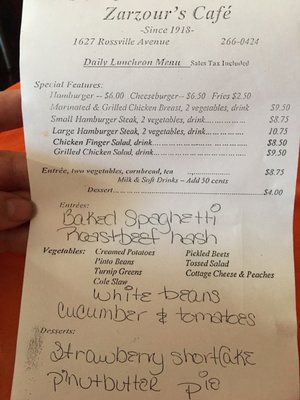 Zarzour's Café
-Since 1918-
1627 Rossville Avenue 266-0424
Daily Luncheon Menu Sales Tax Included
Special Features:
Hamburger -- $6.00 Cheeseburger-- $6.50 Fries $2.50
Marinated & Grilled Chicken Breast, 2 vegetables, drink $9.50
Small Hamburger Steak, 2 vegetables, drink ................ $8.75
Large Hamburger Steak, 2 vegetables, drink................ 10.75
Chicken Finger Salad, drink................................ $8.50
Grilled Chicken Salad, drink................................ $9.50
Entrée, two vegetables, cornbread, tea ................ $8.75
Milk & Soft Drinks – Add 50 cents
Dessert................................ $4.00
Entrées:
Baked Spaghetti
Roastbeef hash
Vegetables: Creamed Potatoes Pickled Beets
Pinto Beans Tossed Salad
Turnip Greens Cottage Cheese & Peaches
Cole Slaw
white beans
cucumber & tomatoes
Desserts:
Strawberry shortcake
pinutbutter pie